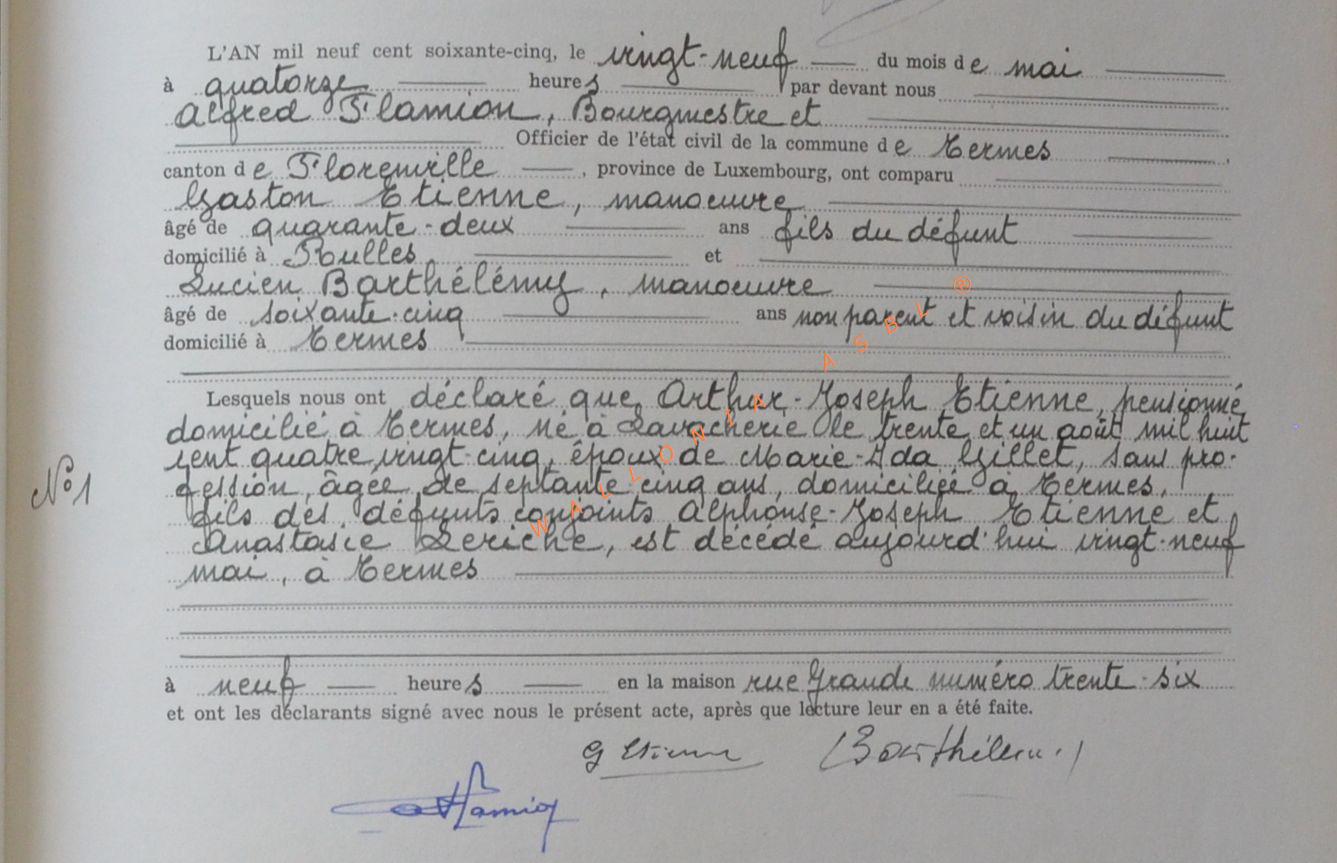 L'AN mil neuf cent soixante-cinq, le vingt-neuf du mois de mai
à quatorze heures par devant nous
Alfred Flamion, Bourgmestre et
Officier de l'état civil de la commune de Termes
canton de Florenville, province de Luxembourg, ont comparu
Gaston Etienne, manoeuvre
âgé de quarante-deux ans fils du défunt
domicilié à Rulles et
Lucien Barthélémy, manoeuvre
âgé de soixante-cinq ans non parent et voisin du défunt
domicilié à Termes
Lesquels nous ont déclaré que Arthur-Joseph Etienne, pensionné
domicilié à Termes, né à Lavacherie le trente et un août mil huit
cent quatre vingt-cinq, époux de Marie-Ida Gillet, sans pro-
fession, âgée de septante cinq ans, domiciliée à Termes,
N°1
fils des défunts conjoints Alphonse-Joseph Etienne et
Anastasie Leriche, est décédé aujourd'hui vingt-neuf
mai, à Termes
à neuf heures en la maison rue Grande numéro trente-six
et ont les déclarants signé avec nous le présent acte, après que lecture leur en a été faite.
G Etienne Barthélemy
AFlamion
WALLONIA ASBL @